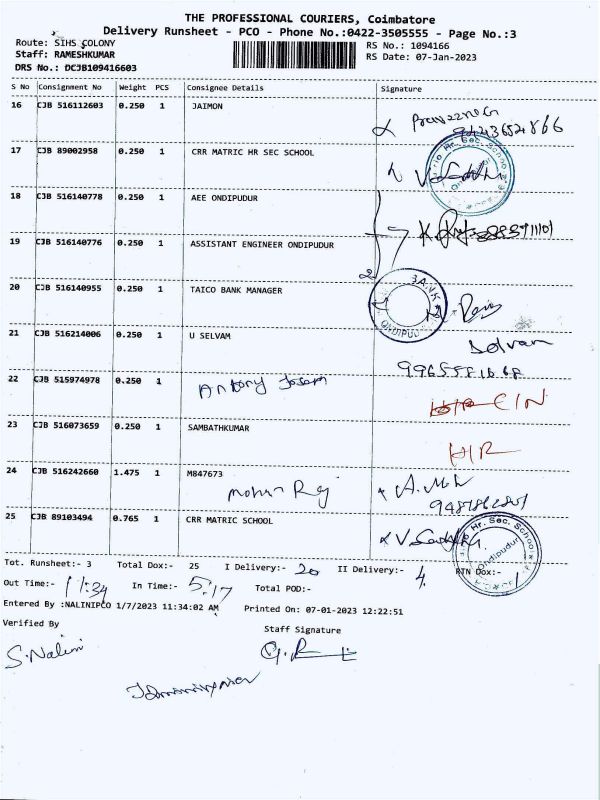 THE PROFESSIONAL COURIERS, Coimbatore
Delivery Runsheet - PCO - Phone No.:0422-3505555 - Page No.:3
Route: SIHS COLONY
RS No.: 1094166
Staff: RAMESHKUMAR
RS Date: 07-Jan-2023
DRS No.: DCJB109416603
S No Consignment No Weight PCS Consignee Details Signature
16 CJB 516112603 0.250 1 JAIMON
17 CJB 89002958 0.250 1 CRR MATRIC HR SEC SCHOOL
18 CJB 516140778 0.250 1 AEE ONDIPUDUR
19 CJB 516140776 0.250 1 ASSISTANT ENGINEER ONDIPUDUR
20 CJB 516140955 0.250 1 TAICO BANK MANAGER
21 CJB 516214006 0.250 1 U SELVAM Selvam
22 CJB 515974978 0.250 1 Antony Joseph
CIN
23 CJB 516073659 0.250 1 SAMBATHKUMAR
H/R
24 CJB 516242660 1.475 1 M847673
Mohan Raj
25 CJB 89103494 0.765 1 CRR MATRIC SCHOOL
Hr. Sec. School
Ondipudur
Tot. Runsheet:- 3 Total Dox:- 25 I Delivery:- 20 II Delivery:- 4 RTN Dox:- 1
Out Time:- 11:34 In Time:- 5:17 Total POD:-
Entered By :NALINIPCO 1/7/2023 11:34:02 AM Printed On: 07-01-2023 12:22:51
Verified By Staff Signature
S. Nalini